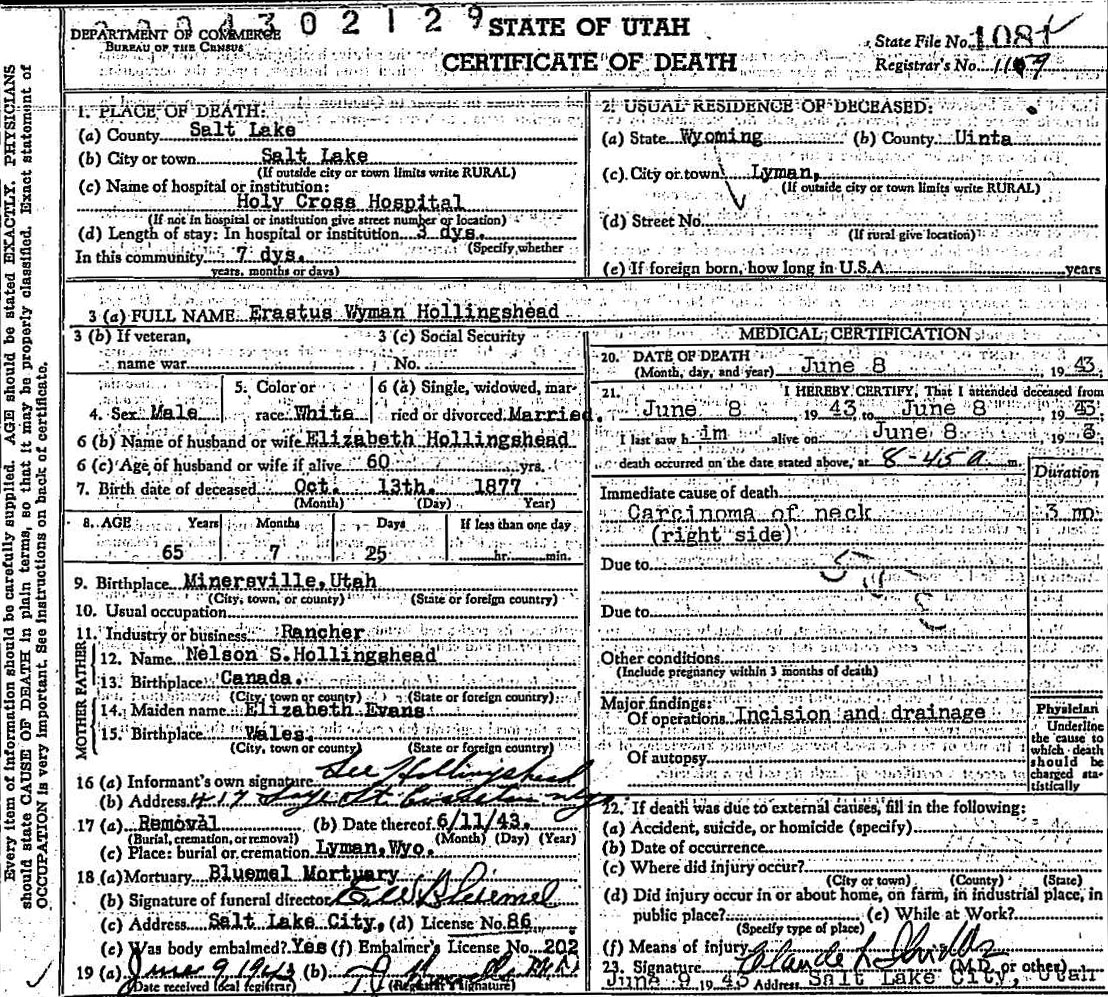 0004302129
DEPARTMENT OF COMMERCE
BUREAU OF THE CENSUS
STATE OF UTAH
CERTIFICATE OF DEATH
State File No. 1081
Registrar's No.
Every item of information should be carefully supplied. AGE should be stated EXACTLY. PHYSICIANS
should state CAUSE OF DEATH in plain terms, so that it may be properly classified. Exact statement of
OCCUPATION is very important. See instructions on back of certificate.
1. PLACE OF DEATH:
(a) County Salt Lake
(b) City or town Salt Lake
(If outside city or town limits write RURAL)
(c) Name of hospital or institution:
Holy Cross Hospital
(If not in hospital or institution give street number or location)
(d) Length of stay: In hospital or institution 3 dys.
(Specify whether
In this community 7 dys.
years, months or days)
2. USUAL RESIDENCE OF DECEASED:
(a) State Wyoming (b) County Uinta
(c) City or town Lyman,
(If outside city or town limits write RURAL)
(d) Street No.
(If rural give location)
(e) If foreign born, how long in U.S.A. years
3 (a) FULL NAME Erastus Wyman Hollingshead
3 (b) If veteran, 3 (c) Social Security
name war No.
4. Sex Male 5. Color or race White 6 (a) Single, widowed, married or divorced Married.
6 (b) Name of husband or wife Elizabeth Hollingshead
6 (c) Age of husband or wife if alive 60 yrs.
7. Birth date of deceased Oct. 13th. 1877
(Month) (Day) Year)
8. AGE Years Months Days If less than one day
65 7 25 hr. min.
9. Birthplace Minersville, Utah
(City, town, or county) (State or foreign country)
10. Usual occupation
11. Industry or business Rancher
FATHER
12. Name Nelson S. Hollingshead
13. Birthplace Canada.
(City, town or county) (State or foreign country)
MOTHER
14. Maiden name Elizabeth Evans
15. Birthplace Wales.
(City, town or county) (State or foreign country)
16 (a) Informant's own signature Lee Hollingshead
(b) Address 417 St. Evanston Wyo
17 (a) Removal (b) Date thereof 6/11/43.
(Burial, cremation, or removal) (Month) (Day) (Year)
(c) Place: burial or cremation Lyman, Wyo.
18 (a) Mortuary Bluemel Mortuary
(b) Signature of funeral director Bluemel
(c) Address Salt Lake City, (d) License No. 86
(e) Was body embalmed? Yes (f) Embalmer's License No. 202
19 (a) June 9 1943 (b) M.D.
(Date received local registrar) (Registrar's signature)
MEDICAL CERTIFICATION
20. DATE OF DEATH
(Month, day, and year) June 8 19 43.
21. I HEREBY CERTIFY, That I attended deceased from
June 8 19 43 to June 8 19 43
I last saw h im alive on June 8 19 3
death occurred on the date stated above, at 8-45 a m.
Duration
Immediate cause of death
Carcinoma of neck 3 mo
(right side)
Due to
Due to
Other conditions
(Include pregnancy within 3 months of death)
Major findings:
Of operations Incision and drainage
Of autopsy
Physician
Underline
the cause to
which death
should be
charged sta-
tistically
22. If death was due to external causes, fill in the following:
(a) Accident, suicide, or homicide (specify)
(b) Date of occurrence
(c) Where did injury occur?
(City or town) (County) (State)
(d) Did injury occur in or about home, on farm, in industrial place, in
public place? (e) While at Work?
(Specify type of place)
(f) Means of injury
23. Signature Claude L Shields
(M.D. or other)
June 9 19 43 Address Salt Lake City, Utah